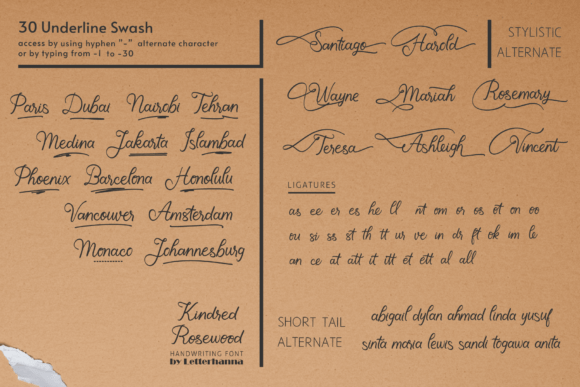 30 Underline Swash
access by using hyphen "-" alternate character
or by typing from -1 to -30
Paris Dubai Nairobi Tehran
Medina Jakarta Islambad
Phoenix Barcelona Honolulu
Vancouver Amsterdam
Monaco Johannesburg
Kindred
Rosewood
HANDWRITING FONT
by Letterhanna
STYLISTIC
ALTERNATE
Santiago Harold
Wayne Mariah Rosemary
Teresa Ashleigh Vincent
LIGATURES
as ee er es he ll nt om or os ot on oo
ou si ss st th tt ur ve in ds ft ok im le
an ce at att it itt et ett al all
SHORT TAIL
ALTERNATE
abigail dylan ahmad linda yusuf
sinta maria lewis sandi togawa anita